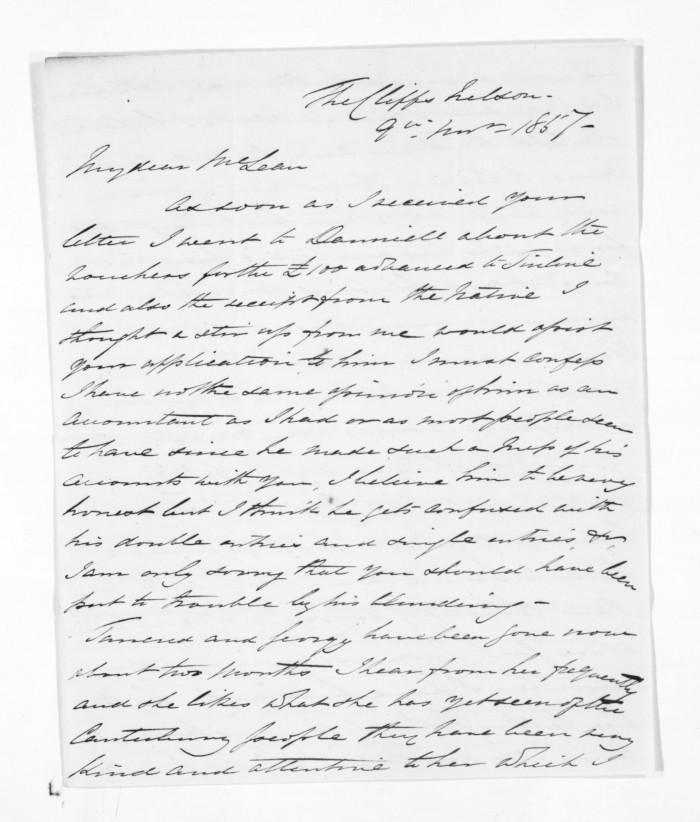 The Cliffs Nelson -
9th Novr 1857 -
My dear McLean
As soon as I received your
letter I went to Danniell about the
vouchers for the £100 advanced to Tinline
and also the receipt from the Native I
thought a stir up from me would assist
your application to him I must confess
I have not the same opinion of him as an
Accountant as I had or as most people seem
to have since he made such a mess of his
accounts with you, I believe him to be very
honest but I think he gets confused with
his double entries and single entries &c,
I am only sorry that you should have been
put to trouble by his blundering -
Tancred and Georgy have been gone now
about two months I hear from her frequently
and she likes what she has yet seen of the
Canterbury people they have been very
kind and attentive to her which I